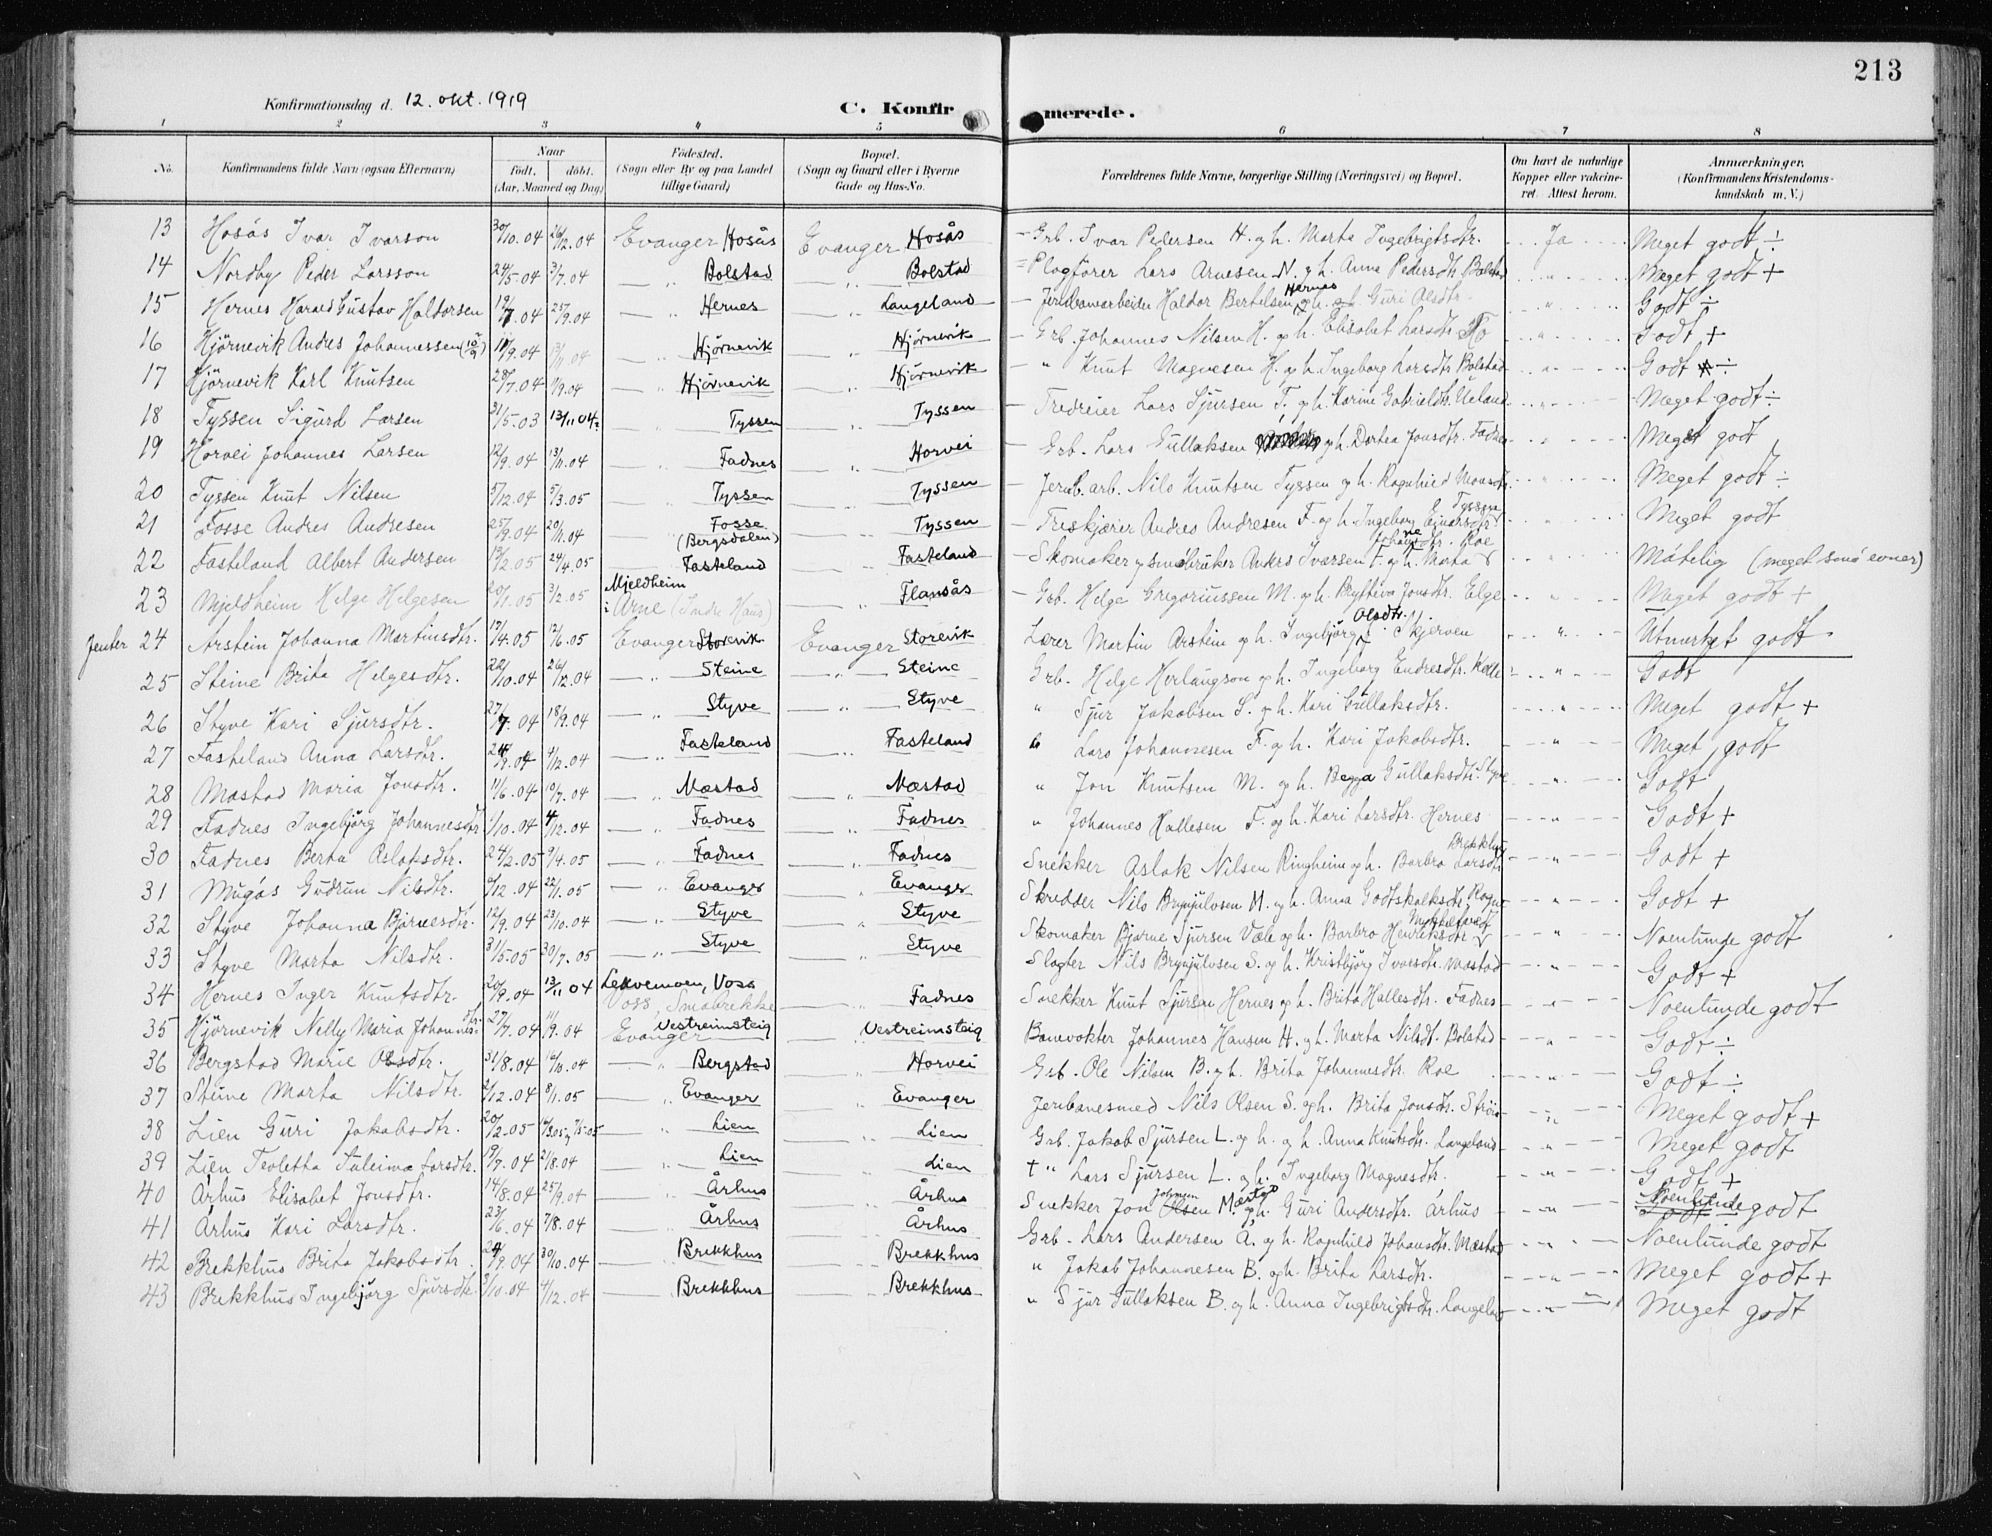 213
Konfirmationsdag d. 12. okt. 1919
C. Konfirmerede.
1 2 3 4 5 6 7 8
No. Konfirmandens fulde Navn (ogsaa Efternavn) Naar født. døbt. (Aar, Maaned og Dag) Fødested. (Sogn eller By og paa Landet tillige Gaard) Bopæl. (Sogn og Gaard eller i Byerne Gade og Hus-No. Forældrenes fulde Navne, borgerlige Stilling (Næringsvei) og Bopæl. Om havt de naturlige Kopper eller vakcineret. Attest herom. Anmærkninger. (Konfirmandens Kristendomskundskab m. V.)
13 Hosås Ivar Ivarson 30/10.04 26/12.04 Evanger Hosås Evanger Hosås Grb. Ivar Pedersen H. og h. Marta Ingebrigtsdtr. Ja Meget godt ÷
14 Nordby Peder Larsson 24/5.04 3/7.04 " Bolstad " Bolstad Plagfører Lars Arnesen N. og h. Anna Pedersdtr. Bolstad " Meget godt +
15 Hernes Harald Gustav Haldorsen 19/7.04 25/9.04 " Hernes " Langeland Jernbanearbeider Haldor Bertelsen Hernes og h. Guri Olsdtr. " Godt ÷
16 Hjörnevik Andres Johannessen 11/9.04 13/11.04 " Hjørnevik " Hjørnevik Grb. Johannes Nilsen H. og h. Elisabet Larsdtr. " Godt +
17 Hjörnevik Karl Knutsen 28/7.04 /9.04 " Hjørnevik " Hjørnevik " Knut Magnesen H. og h. Ingeborg Larsdtr. Bolstad " Godt ÷
18 Tyssen Sigurd Larsen 31/5.03 13/11 04. " Tyssen " Tyssen Tredreier Lars Sjursen T. og h. Karine Gabrieldtr. Ueland " Meget godt ÷
19 Horvei Johannes Larsen 12/9.04 13/11.04 " Fadnes " Horvei Grb. Lars Gullaksen og h. Dortea Jonsdtr. Fadnes " Meget godt
20 Tyssen Knut Nilsen 5/12.04 5/3.05 " Tyssen " Tyssen Jernb. arb. Nils Knutsen Tyssen og h. Ragnhild Monsdtr. " Meget godt ÷
21 Fosse Andres Andresen 25/9.04 20/11.04 " Fosse (Bergsdalen) " Tyssen Treskjærer Andres Andresen F. og h. Ingeborg Eivarsdtr. Tyssen " Meget godt
22 Fasteland Albert Andersen 13/2.05 24/4.05 " Fasteland " Fasteland Skomaker og småbruker Anders Iversen F. og h. Marta Johannedtr. Roe " Måtelig (meget små evner)
23 Mjeldheim Helge Helgesen 20/1.05 3/2.05 Mjeldheim i Arne (Indre Haus) " Flansås Grb. Helge Gregoriussen M. og h. Brytteva Jonsdtr. Elge " Meget godt +
Jenter 24 Arstein Johanna Martinsdtr. 17/4.05 12/6.05 Evanger Storevik Evanger Storevik Lærer Martin Arstein og h. Ingebjörg Olsdtr. Skjerven " Utmerket godt
25 Steine Brita Helgesdtr. 22/10.04 26/12.04 " Steine " Steine Grb. Helge Herlaugson og h. Ingeborg Endresdtr. Kalle " Godt
26 Styve Kari Sjursdtr. 27/7.04 18/9.04 " Styve " Styve " Sjur Jakobsen S. og h. Kari Gullaksdtr. " Meget godt +
27 Fasteland Anna Larsdtr. 24/9.04 4/12.04 " Fasteland " Fasteland " Lars Johannesen F. og h. Kari Jakobsdtr. " Meget godt
28 Mæstad Maria Jonsdtr. 11/6.04 10/7.04 " Mæstad " Mæstad " Jon Knutsen M. og h. Begga Gullaksdtr. Styve " Godt
29 Fadnes Ingebjörg Johannesdtr. /10.04 4/12.04 " Fadnes " Fadnes " Johannes Hallesen F. og h. Kari Larsdtr. Hernes " Godt +
30 Fadnes Berta Aslaksdtr. 24/2.05 9/4.05 " Fadnes " Fadnes Snekker Aslak Nilsen Ringheim og h. Barbro Larsdtr. Brekkhus " Godt +
31 Mugås Gudrun Nilsdtr. /12.04 22/1.05 " Evanger " Evanger Skredder Nils Brynjulvsen M. og h. Anna Godtskalksdtr. " Godt +
32 Styve Johanna Bjarnesdtr. 12/9.04 23/10.04 " Styve " Styve Skomaker Bjarne Sjursen Væle og h. Barbro Henriksdtr. " Noenlunde godt
33 Styve Marta Nilsdtr. 31/5.05 30/7.05 " Styve " Styve Slagter Nils Brynjulvsen S. og h. Kristbjörg Ivarsdtr. Mæstad " Godt +
34 Hernes Inger Knutsdtr. 20/9.04 13/11 04 Lekvemoen, Voss Voss, Småbrekke " Fadnes Snekker Knut Sjursen Hernes og h. Brita Hallesdtr. Fadnes " Noenlunde godt
35 Hjörnevik Nelly Maria Johannesdtr. 27/7.04 11/9.04 Evanger Vestreimsteig Vestreimsteig Banevokter Johannes Hansen H. og h. Marta Nilsdtr. Bolstad " Godt ÷
36 Bergstad Marie Olsdtr. 31/8.04 16/10.04 " Bergstad " Horvei Grb. Ole Nilsen B. og h. Brita Johannesdtr. Roe " Godt ÷
37 Steine Marta Nilsdtr. 2/12.04 8/1.05 " Evanger " Evanger Jernbanesmed Nils Olsen S. og h. Brita Jonsdtr. " Meget godt +
38 Lien Guri Jakobsdtr. 20/2.05 " Lien " Lien Grb. Jakob Sjursen L. og h. og h. Anna Knutsdtr. Langeland " Meget godt
39 Lien Teoletta Suleima Larsdtr. 19/7.04 21/8.04 " Lien " Lien + " Lars Sjursen L. og h. Ingeborg Magnesdtr. " Godt +
40 Århus Elisabet Jonsdtr. 14/8.04 25/9.04 " Århus " Århus Snekker Jon Olsen Johnsen Mæstad og h. Guri Andersdtr. Århus " Godt Noenlunde godt
41 Århus Kari Larsdtr. 23/6.04 7/8.04 " Århus " Århus Grb. Lars Andersen A. og h. Ragnhild Johansdtr. Mæstad " Noenlunde godt
42 Brekkhus Brita Jakobsdtr. 24/9.04 30/10.04 " Brekkhus " Brekkhus " Jakob Johannesen B. og h. Brita Larsdtr. " Meget godt +
43 Brekkhus Ingebjörg Sjursdtr. 3/10.04 4/12.04 Brekkhus " Brekkhus " Sjur Gullaksen B. og h. Anna Ingebrigtsdtr. Langeland " Meget godt